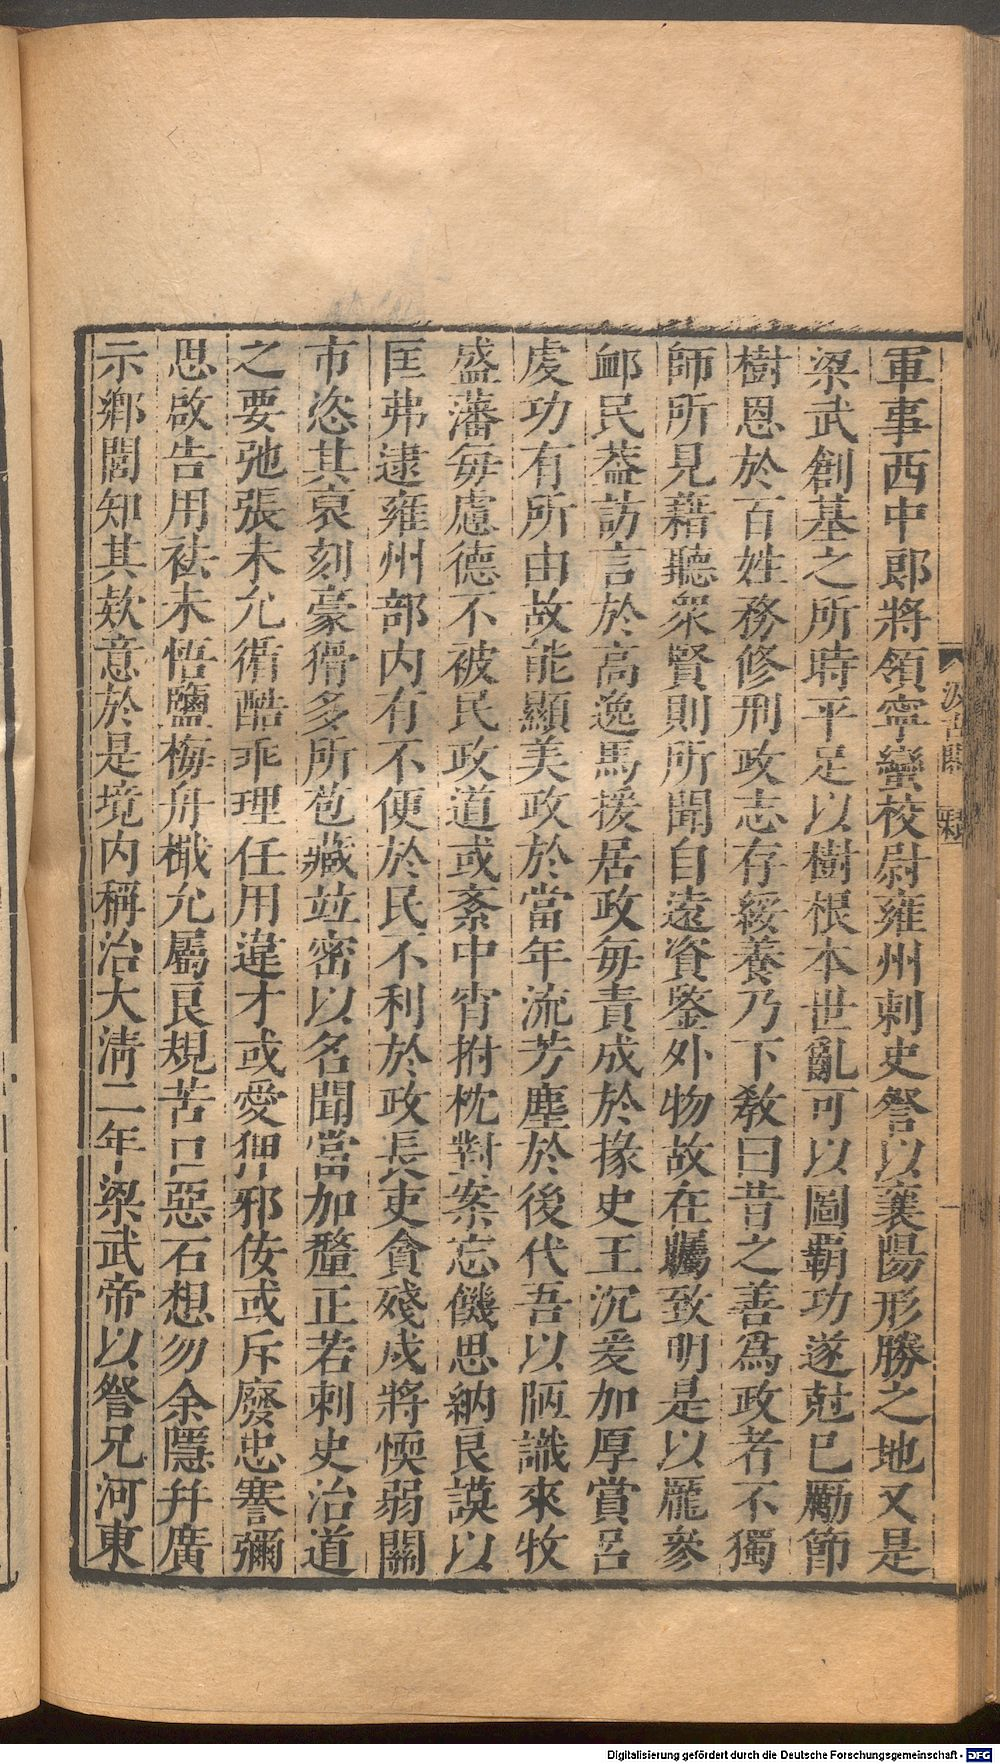 軍事西中郎將領寧蠻校尉雍州刺史詧以襄陽形勝之地又是
梁武創基之所時平足以樹根本世亂可以圖覇功遂尅巳勵節
樹恩於百姓務修刑政志存綏養乃下敎曰昔之善爲政者不獨
師所見藉聽衆賢則所聞自遠資鑒外物故在矚致明是以龎參
䘏民葢訪言於高逸馬援居政每責成於掾史王沉爰加厚賞呂
虔功有所由故能顯美政於當年流芳塵於後代吾以陋識來牧
盛藩每慮德不被民政道或紊中宵拊枕對案忘饑思納良謨以
匡弗逮雍州部內有不便於民不利於政長吏貪殘戍將愞弱關
市恣其裒刻豪猾多所苞藏竝密以名聞當加釐正若刺史治道
之要弛張未允循酷乖理任用違才或愛狎邪佞或斥廢忠謇彌
思啟告用袪未悟鹽梅舟檝允屬良規苦口惡石想勿余隱幷廣
示鄉閭知其欵意於是境內稱治大淸二年梁武帝以詧兄河東
汲古閣
Digitalisierung gefördert durch die Deutsche Forschungsgemeinschaft - DFG